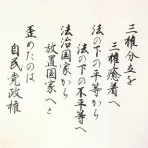 三権分立を
三権癒着へ
法の下の平等から
法の下の不平等へ
法治国家から
放置国家へと
歪めたのは
自民党政権